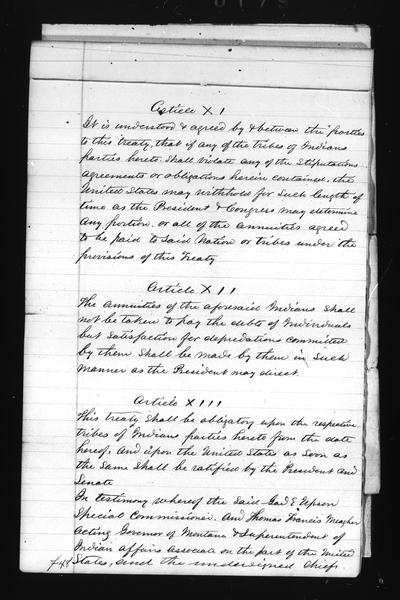 Article XI
It is understood & agreed by & between the parties
to this treaty, that if any of the tribes of Indians
parties hereto shall violate any of the Stipulations
agreements or obligations herein contained, the
United States may withhold for such length of
time as the President & Congress may determine
any portion, or all of the annuities agreed
to be paid to said Nation or tribes under the
provisions of this Treaty
Article XII
The annuities of the aforesaid Indians shall
not be taken to pay the debts of Individuals
but satisfaction for depredations committed
by them shall be made by them in such
manner as the President may direct.
Article XIII
This treaty shall be obligatory upon the respective
tribes of Indians parties hereto from the date
hereof, and upon the United States as soon as
the same shall be ratified by the President and
Senate
In testimony whereof the said Gad E Upson
Special Commissioner. And Thomas Francis Meagher
acting Governor of Montana & Superentendent of
Indian affairs Associate on the part of the United
States, and the undersigned chiefs